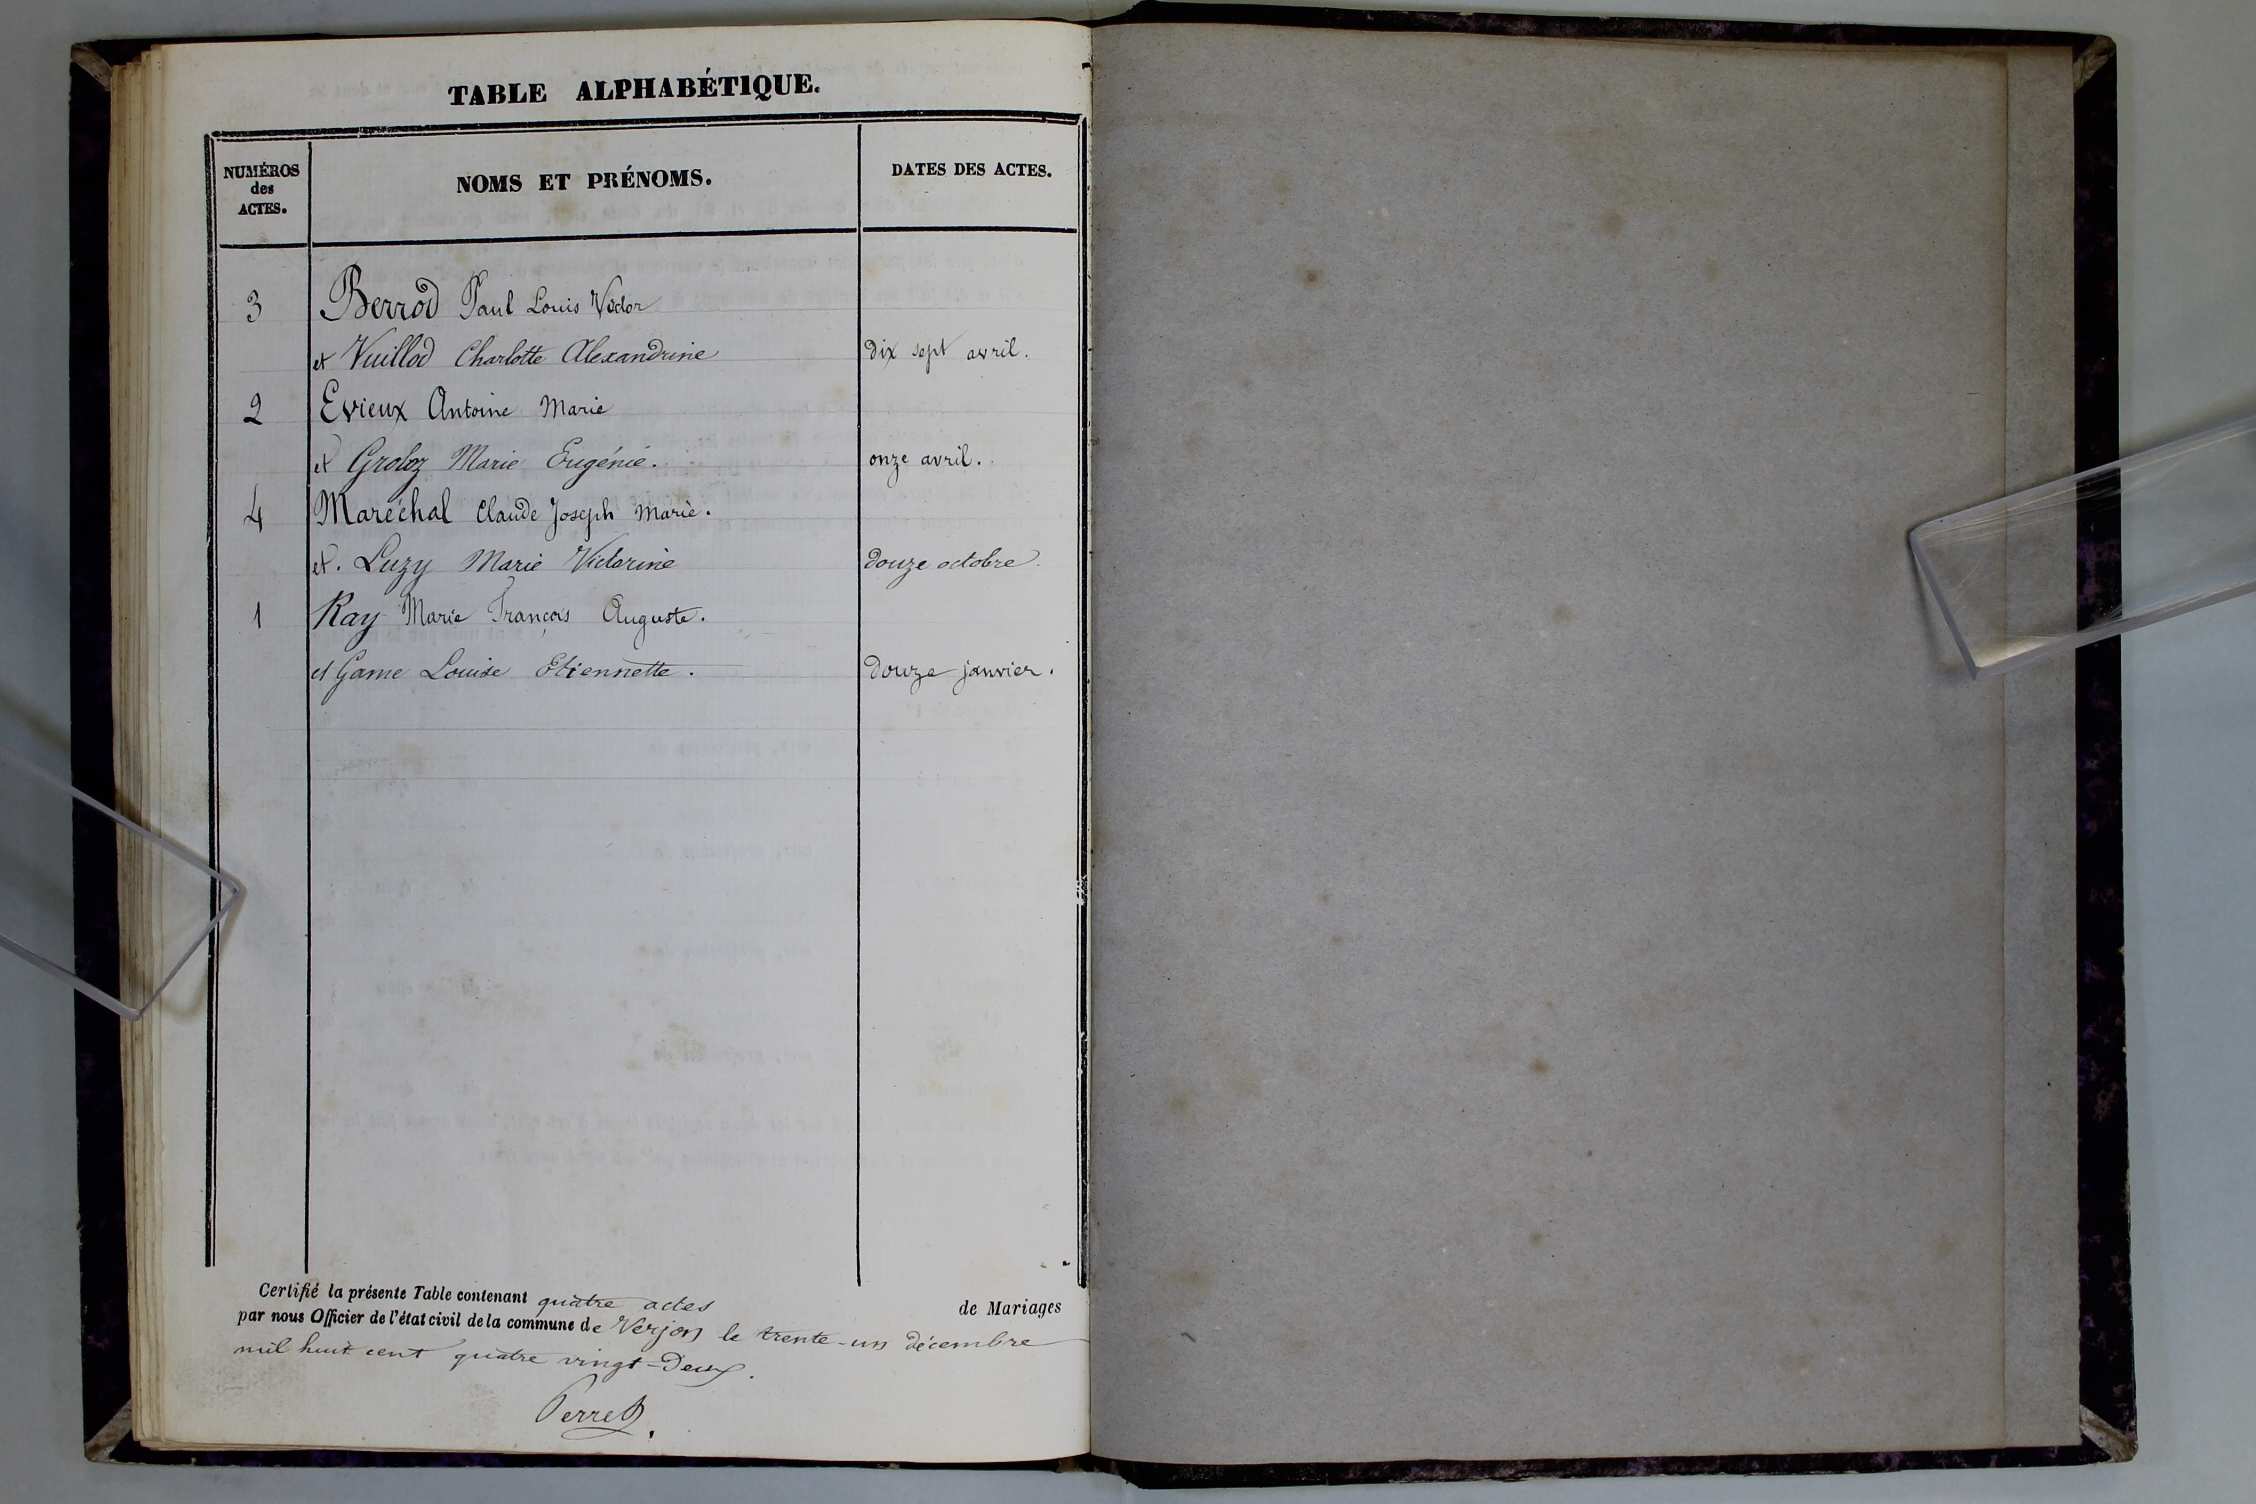 TABLE ALPHABÉTIQUE.
NUMÉROS
des
ACTES.
NOMS ET PRÉNOMS.
DATES DES ACTES.
3 Berrod Paul Louis Victor
et Vuillod Charlotte Alexandrine dix sept avril.
2 Evieux Antoine Marie
et Groboz Marie Eugénie. onze avril.
4 Maréchal Claude Joseph Marie.
et. Luzy Marie Victorine douze octobre.
1 Ray Marie François Auguste.
et Game Louise Etiennette. douze janvier.
Certifié la présente Table contenant quatre actes de Mariages
par nous Officier de l'état civil de la commune de Verjon le trente-un décembre
mil huit cent quatre vingt-Deux.
Perret